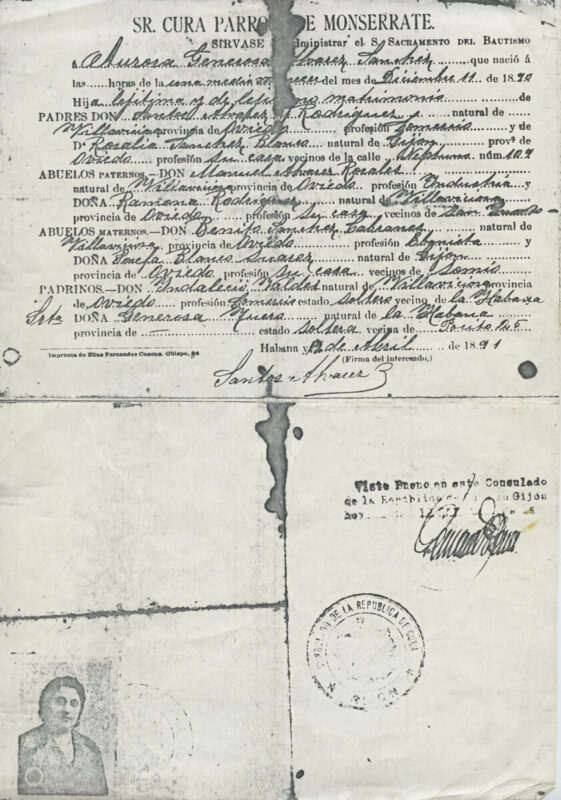 SR. CURA PARRO DE MONSERRATE.
SIRVASE administrar el S. SACRAMENTO DEL BAUTISMO
á Aurora Generosa Alvarez Sanchez que nació á
las horas de la una media del mes de Diciembre 11 de 1890
Hija lejitima y de lejitimo matrimonio de
PADRES DON Santos Alvarez y Rodriguez natural de
Villaviciosa provincia de Oviedo profesión Comercio y de
Dª Rosalia Sanchez Blanco natural de Gijón provª de
Oviedo profesión su casa vecinos de la calle Neptuno núm. 109
ABUELOS PATERNOS.—DON Manuel Alvarez Rosales
natural de Villaviciosa provincia de Oviedo profesión Industria y
DOÑA Ramona Rodriguez natural de Villaviciosa
provincia de Oviedo profesión Su casa vecinos de San
ABUELOS MATERNOS.—DON Benito Sanchez Cabranes natural de
Villaviciosa provincia de Oviedo profesión Ebanista y
DOÑA Josefa Blanco Suarez natural de Gijon
provincia de Oviedo profesión Su casa vecinos de Somió
PADRINOS.—DON Indalecio Valdes natural de Villaviciosa provincia
de Oviedo profesión Comercio estado soltero vecino de la Habana
Srta DOÑA Generosa natural de la Habana
provincia de estado soltera vecina de 125
Habana y 2 de Abril de 1891
Imprenta de Elias Fernandez Casona, Obispo, 34
(Firma del interesado,)
Santos Alvarez
Visto Bueno en este Consulado
de la República de en Gijón
hoy
CONSULADO DE LA REPUBLICA DE CUBA
GIJON